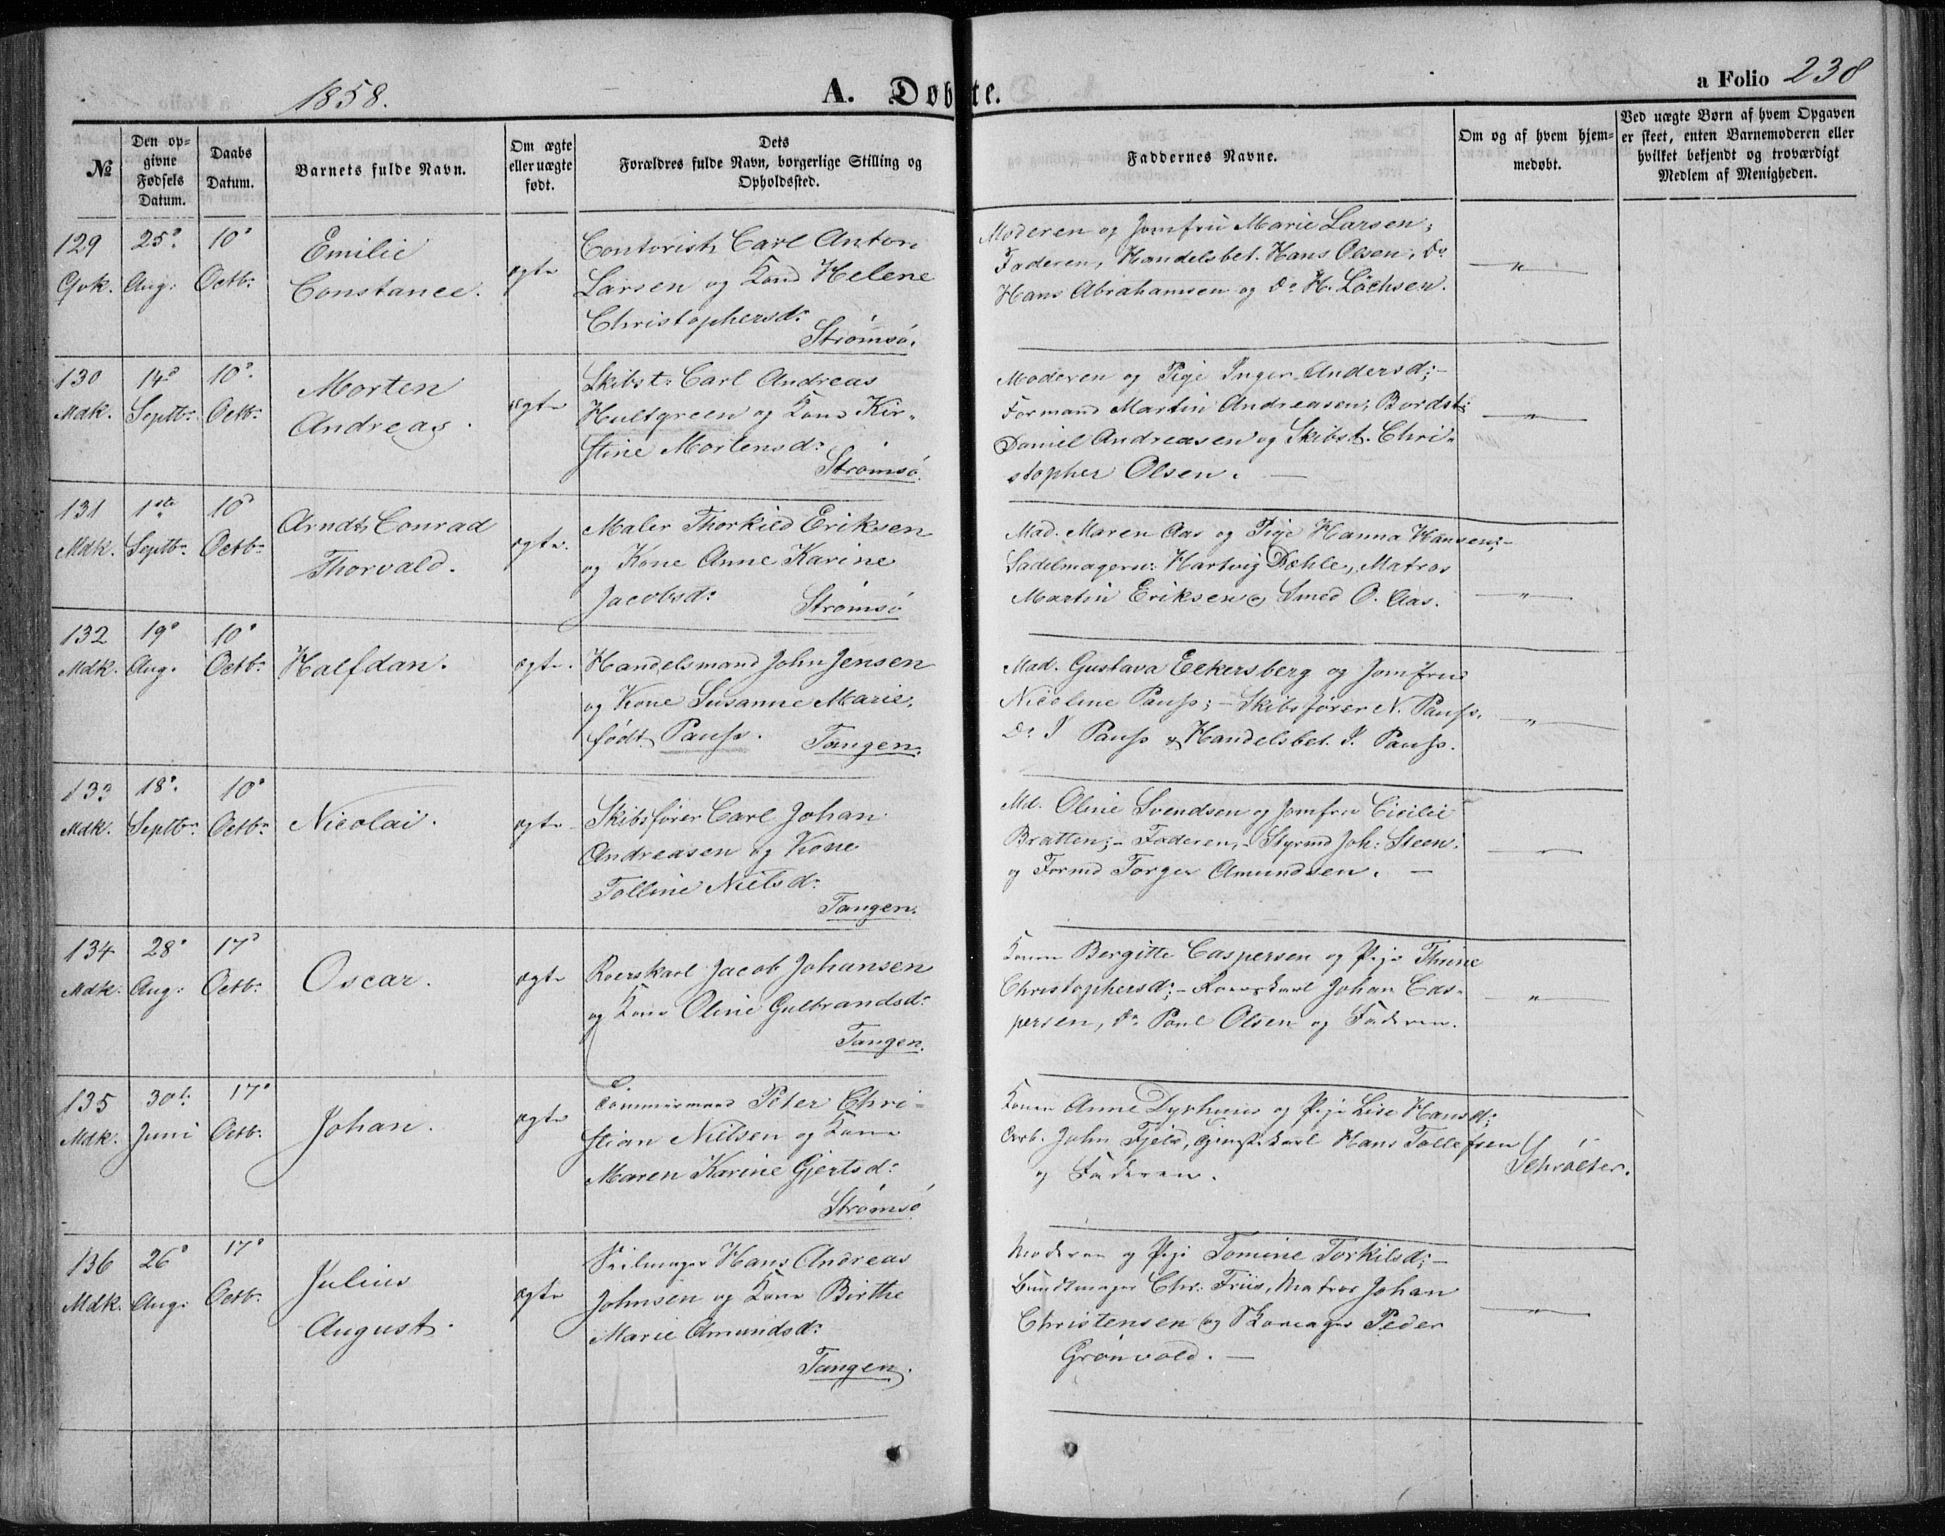 1858.
A. Döbte.
a Folio 238
№
Den op-
givne
Fødsels
Datum.
Daabs
Datum.
Barnets fulde Navn.
Om ægte
eller uægte
født.
Dets
Forældres fulde Navn, borgerlige Stilling og
Opholdssted.
Faddernes Navne.
Om og af hvem hjem-
medøbt.
Ved uægte Børn af hvem Opgaven
er skeet, enten Barnemoderen eller
hvilket bekjendt og troværdigt
Medlem af Menigheden.
129 25de 10de Emilie ægte Contorist Carl Anton
Qvk. Aug: Octbr Constance. Larsen og Kone Helene
Christophersdr
Strømsø.
Moderen og Jomfru Marie Larsen;
Faderen, Handelsbet. Hans Olsen, Do
Hans Abrahamsen og Do H. Löchsen. "
130 14de 10de Morten ægte Skibst: Carl Andreas
Mdk. Septbr Octbr Andreas. Hultgreen og Kone Kir-
stine Mortensdr
Strømsø.
Moderen og Pige Inger Andersd; -
Formand Martin Andreasen, Bordst: "
Daniel Andreasen og Skibst. Chri-
stopher Olsen. -
131 1ste 10de Arndt Conrad ægte. Maler Thorkild Eriksen
Mdk. Septbr Octbr Thorvald. og Kone Anne Karine
Jacobsdr Strømsø
Mad. Maren Aas og Pige Hanna Hansen; -
Sadelmagersv: Hartvig Dæhle, Matros
Martin Eriksen & Smed O. Aas. "
132 19de 10de Halfdan. ægte. Handelsmand John Jensen
Mdk. Aug. Octbr og Kone Susanne Marie,
født Pauss. Tangen.
Mad. Gustava Eckersberg og Jomfru
Nicoline Pauss; - Skibsfører N. Pauss. "
Do I Pauss & Handelsbet. I. Pauss.
133 18de 10de Nicolai. ægte Skibsfører Carl Johan
Mdk. Septbr Octbr Andreasen og Kone
Tolline Nielsdr
Tangen.
Md. Oline Svendsen og Jomfru Cicilie
Bratten; - Faderen, - Styrmd Joh: Steen "
og Formd Torger Amundsen. -
134 28de 17de Oscar. ægte Roerskarl Jacob Johansen
Mdk. Aug: Octbr og Kone Oline Gulbrandsdr
Tangen.
Konen Bergitte Caspersen og Pige Thrine
Christophersd; - Roerskarl Johan Cas- "
persen, Do Paul Olsen og Faderen.
135 30te 17de Johan. ægte Tømmermand Peter Chri-
Mdk. Juni Octbr stian Nielsen og Kone
Maren Karine Gjertsdr
Strømsø
Konen Anne Dyrhuus og Pige Lise Hansd;
Arb. John Fjeld, Gjœst. karl Hans Tollefsen Schrøeter.
og Faderen.
136 26de 17de Julius ægte Seilmager Hans Andreas
Mdk. Aug: Octbr August. Johnsen og Kone Birthe
Marie Amundsdr
Tangen.
Moderen og Pige Tomine Torkilsd; -
Bundtmager Chr: Friis, Matros Johan
Christensen og Skomager Peder "
Grønvold. -